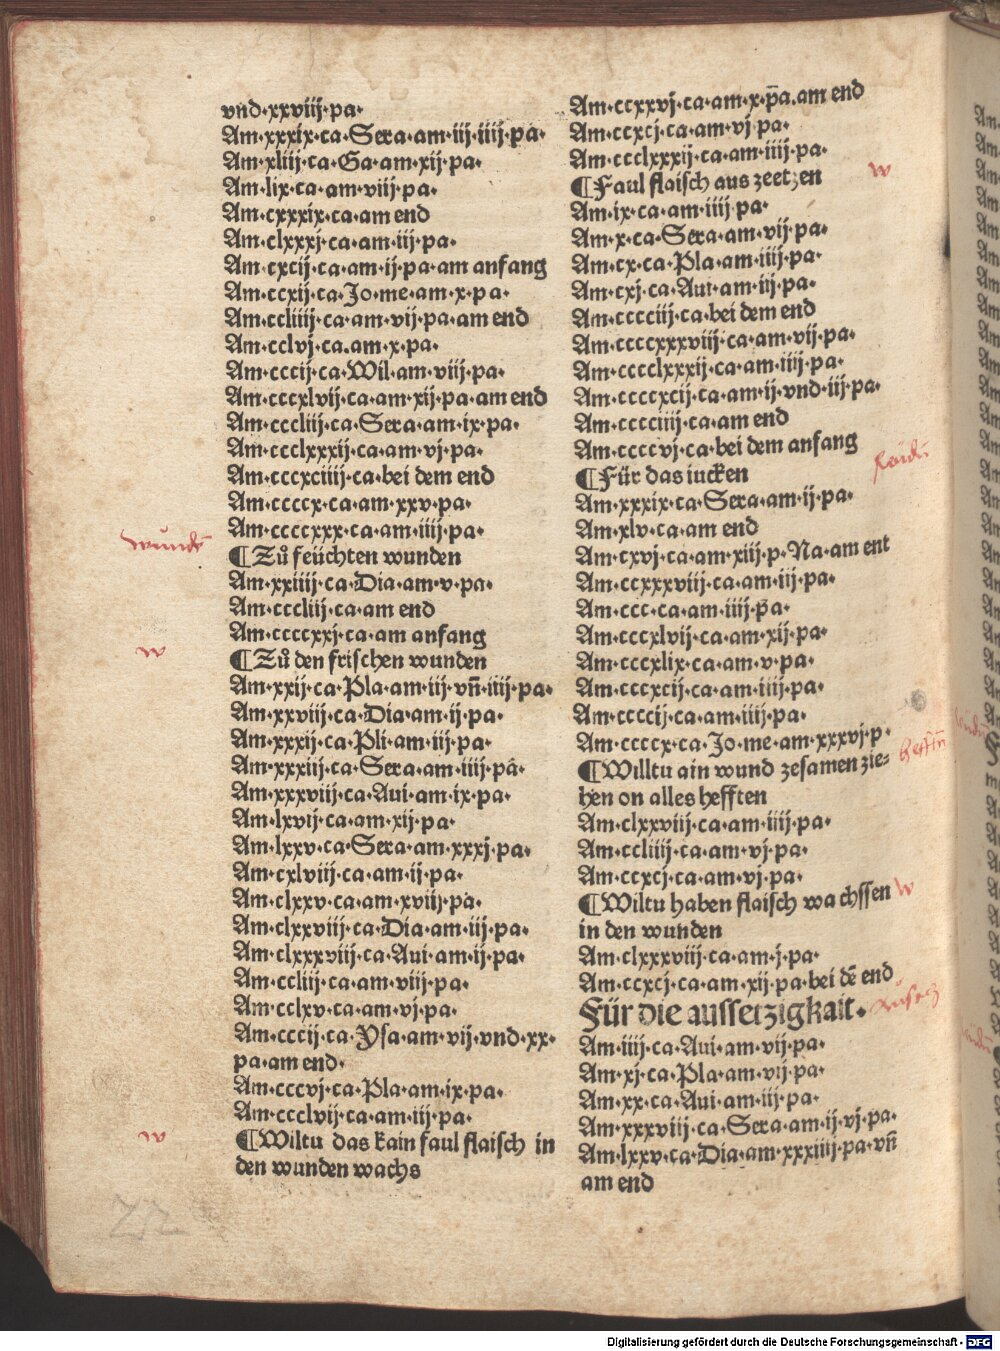 vnd·xxviij·pa·
Am·xxxix·ca·Sera·am·iij·iiij·pa·
Am·xliij·ca·Ga·am·xij·pa·
Am·lix·ca·am·viij·pa·
Am·cxxxix·ca·am end
Am·clxxxj·ca·am·iij·pa·
Am·cxcij·ca·am·ij·pa·am anfang
Am·ccxij·ca·Jo·me·am·x·pa·
Am·ccliiij·ca·am·vij·pa·am end
Am·cclvj·ca.am·x·pa·
Am·cccij·ca·Wil·am·viij·pa·
Am·cccxlvij·ca·am·xij·pa·am end
Am·cccliij·ca·Sera·am·ix·pa·
Am·ccclxxxij·ca·am·vj·pa·
Am·cccxciiij·ca·bei dem end
Am·ccccx·ca·am·xxv·pa·
Am·ccccxxx·ca·am·iiij·pa·
wunde
¶Zů feüchten wunden
Am·xxiiij·ca·Dia·am·v·pa·
Am·cccliij·ca·am end
Am·ccccxxj·ca·am anfang
w
¶Zů den frischen wunden
Am·xxij·ca·Pla·am·iij·vñ·iiij·pa·
Am·xxviij·ca·Dia·am·ij·pa·
Am·xxxij·ca·Pli·am·iij·pa·
Am·xxxiij·ca·Sera·am·iiij·pa·
Am·xxxviij·ca·Aui·am·ix·pa·
Am·lxvij·ca·am·xij·pa·
Am·lxxv·ca·Sera·am·xxxj·pa·
Am·cxlviij·ca·am·ij·pa·
Am·clxxv·ca·am·xviij·pa·
Am·clxxviij·ca·Dia·am·iij·pa·
Am·clxxxviij·ca·Aui·am·ij·pa·
Am·ccliij·ca·am·viij·pa·
Am·cclxv·ca·am·vj·pa·
Am·cccij·ca·Ysa·am·vij·vnd·xx·
pa·am end·
Am·cccvj·ca·Pla·am·ix·pa·
Am·ccclvij·ca·am·iij·pa·
w
¶Wiltu das kain faul flaisch in
den wunden wachs
Am·ccxxvj·ca·am·x·p̄a.am end
Am·ccxcj·ca·am·vj·pa·
Am·ccclxxxij·ca·am·iiij·pa·
¶Faul flaisch aus zeetzen
w
Am·ix·ca·am·iiij·pa·
Am·x·ca·Sera·am·vij·pa·
Am·cx·ca·Pla·am·iiij·pa·
Am·cxj·ca·Aui·am·iij·pa·
Am·cccciij·ca·bei dem end
Am·ccccxxxviij·ca·am·vij·pa·
Am·cccclxxxij·ca·am·iiij·pa·
Am·ccccxcij·ca·am·ij·vnd·iij·pa·
Am·cccciiij·ca·am end
Am·ccccvj·ca·bei dem anfang
¶Für das iucken
Am·xxxix·ca·Sera·am·ij·pa·
Am·xlv·ca·am end
Am·cxvj·ca·am·xiij·p·Na·am ent
Am·ccxxxviij·ca·am·iij·pa·
Am·ccc·ca·am·iiij·pa·
Am·cccxlvij·ca·am·xij·pa·
Am·cccxlix·ca·am·v·pa·
Am·cccxcij·ca·am·iiij·pa·
Am·ccccij·ca·am·iiij·pa·
Am·ccccx·ca·Jo·me·am·xxxvj·p·
¶Willtu ain wund zesamen zie⸗
hen on alles hefften
Am·clxxviij·ca·am·iiij·pa·
Am·ccliiij·ca·am·vj·pa·
Am·ccxcj·ca·am·vj·pa·
¶Wiltu haben flaisch wachssen
w
in den wunden
Am·clxxxviij·ca·am·j·pa·
Am·ccxcj·ca·am·xij·pa·bei dē end
Für die aussetzigkait·
Am·iiij·ca·Aui·am·vij·pa·
Am·xj·ca·Pla·am·vij·pa·
Am·xx·ca·Aui·am·iij·pa·
Am·xxxviij·ca·Sera·am·ij·vj·pa·
Am·lxxv·ca·Dia·am·xxxiiij·pa·vñ
am end
Digitalisierung gefördert durch die Deutsche Forschungsgemeinschaft - DFG